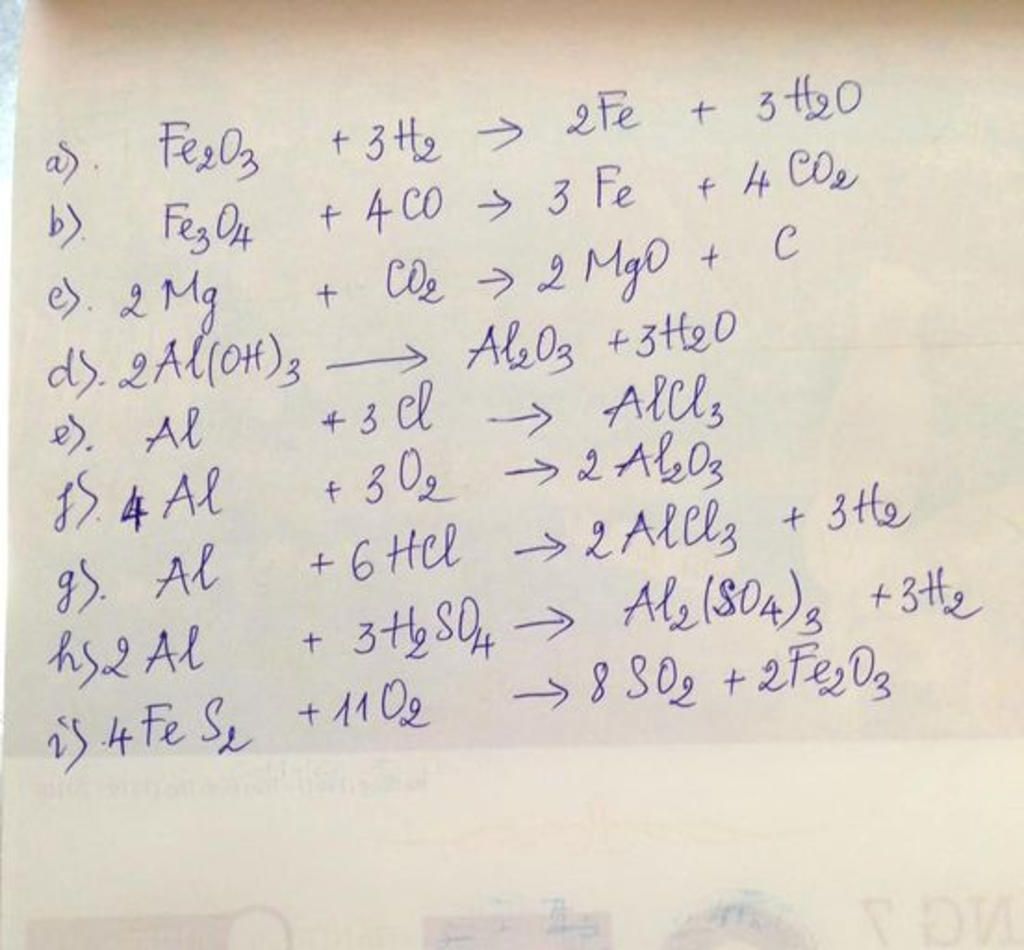 a). Fe2O3 + 3H2 → 2Fe + 3H2O
b). Fe3O4 + 4CO → 3Fe + 4CO2
c). 2Mg + CO2 → 2MgO + C
d). 2Al(OH)3 → Al2O3 + 3H2O
e). Al + 3Cl → AlCl3
f). 4Al + 3O2 → 2Al2O3
g). Al + 6HCl → 2AlCl3 + 3H2
h) 2Al + 3H2SO4 → Al2(SO4)3 + 3H2
i) 4FeS2 + 11O2 → 8SO2 + 2Fe2O3